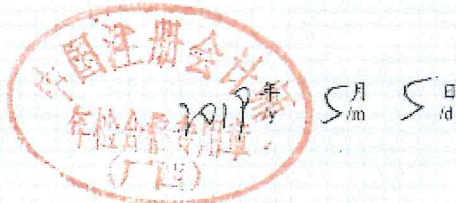 中国注册会计师
年检合格专用章
(广东)
2019年 5月 5日
/y /m /d